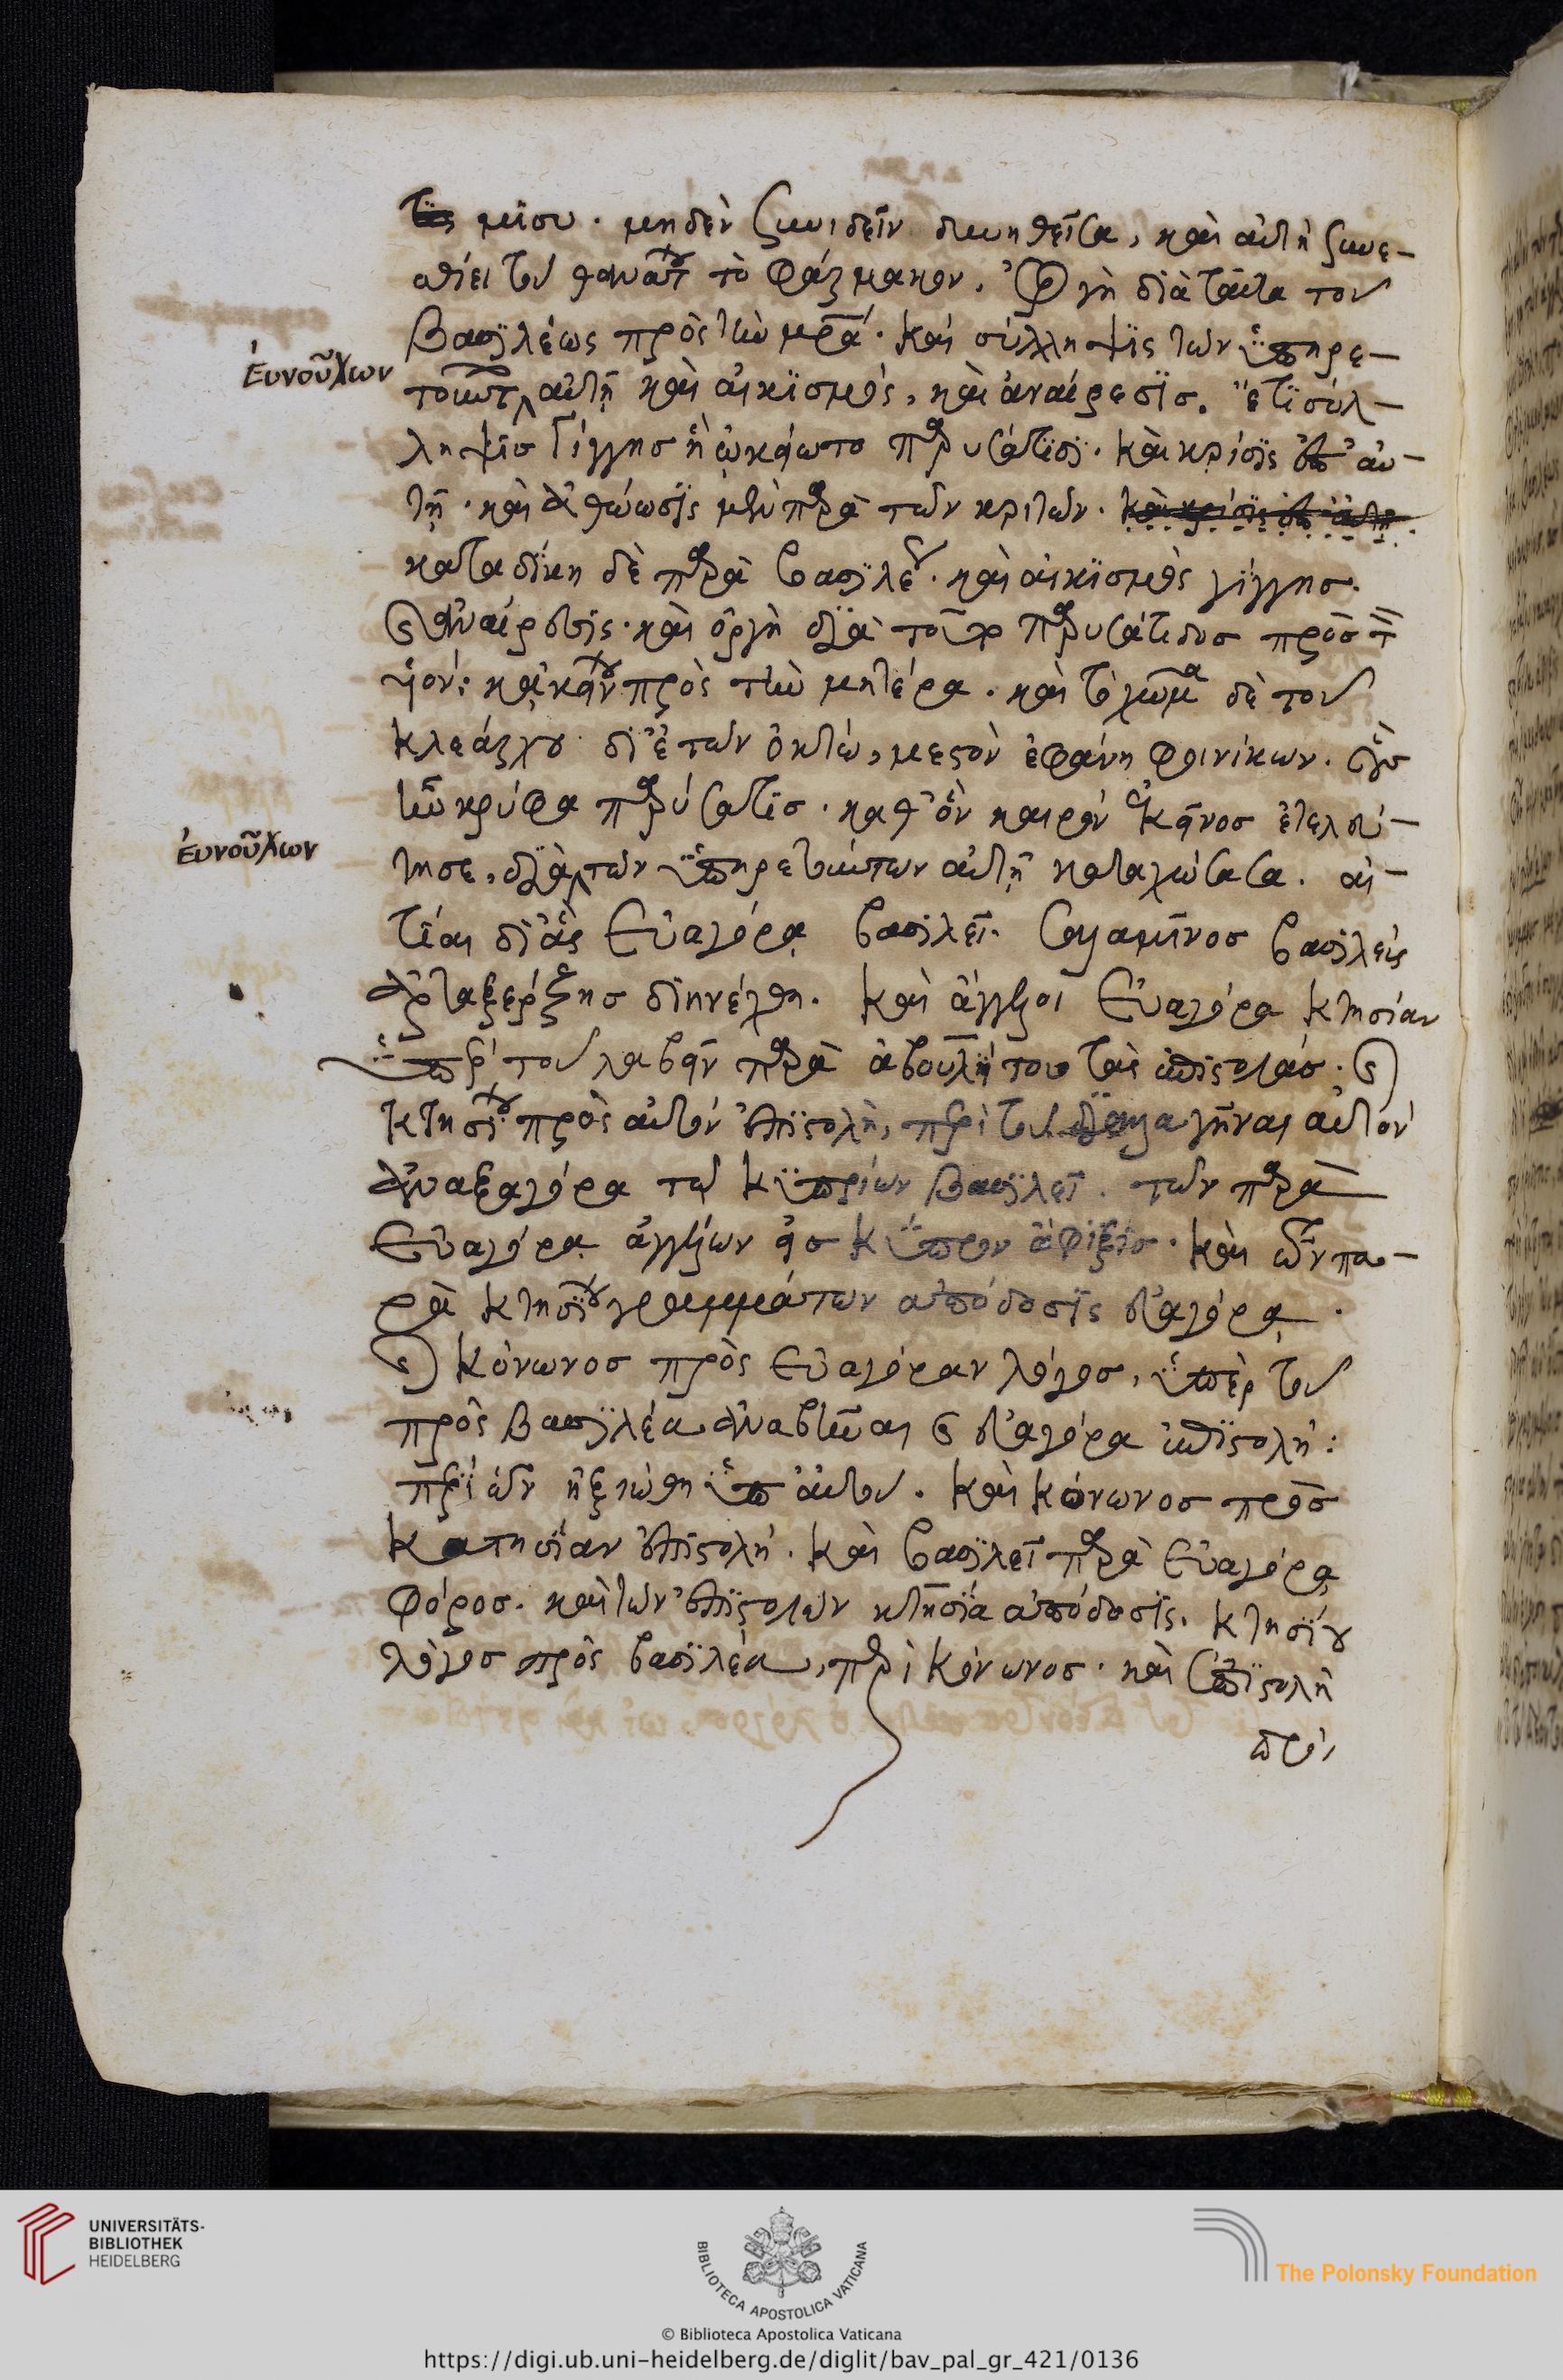 τὸ μέσου. μηδὲν συνιδεῖν δυνηθεῖσα, καὶ αὐτὴ συνε-
σθίει τοῦ θανάτου τὸ φάρμακον. Ὀργὴ διὰ ταῦτα τοῦ
βασϊλέως πρὸς τὴν μητέρα. καὶ σύλληψϊς τῶν ὑπηρε-
ἐυνοῦχων
τούντων αὐτῇ καὶ αἰκϊσμὸς, καὶ ἀναίρεσϊς. ἔτϊ σύλ-
ληψϊς Γίγγης ἢ ὠκείωτο παρυσάτϊδϊ. καὶ κρίσϊς ἐπ' αὐ-
τῇ. καὶ ἀθώωσϊς μὲν παρὰ τῶν κριτῶν. καὶ κρίσϊς ἐπ' αὐτῇ
καταδίκη δὲ παρὰ βασϊλέως. καὶ αἰκϊσμὸς γίγγης.
καὶ ἀναίρεσϊς. καὶ ὀργὴ δϊὰ τοῦτο παρυσάτιδος πρὸς τὸν
υἱόν: κἀκείνου πρὸς τὴν μητέρα. καὶ τὸ χῶμα δὲ τοῦ
κλεάρχου δι' ἐτῶν ὀκτὼ, μεστὸν ἐφάνη φοινίκων. οὓς
ἦν κρύφα παρύσατϊς. καθ' ὃν καιρὸν ἐκεῖνος ἐτελεύ-
ἐυνοῦχων
τησε, δϊὰ τῶν ὑπηρετούντων αὐτῇ καταχώσασα. αἰ-
τίαι δι' ἃς Εὐαγόρᾳ βασϊλεῖ. Σαλαμῖνος βασϊλεὺς
ἀρταξέρξης διηνέχθη. καὶ ἄγγελοι Εὐαγόρα κτησίαν
ὑπὲρ τοῦ λαβεῖν παρὰ ἀβουλήτου τὰς ἐπιστολάς. καὶ
κτησίου πρὸς αὐτὸν ἐπϊστολὴ, περὶ τοῦ διαλλαγῆναι αὐτὸν
ἀναξαγόρα τῷ κϋπρίων βασϊλεῖ. τῶν παρὰ
Εὐαγόρα ἀγγέλων εἰς κϋπρον ἄφιξϊς. καὶ τῶν πα-
ρὰ κτησίου γραμμάτων ἀπόδοσϊς εὐαγόρᾳ.
καὶ κόνωνος πρὸς Εὐαγόραν λόγος, ὑπὲρ τοῦ
πρὸς βασϊλέα ἀναβῆναι καὶ εὐαγόρα ἐπϊστολή:
περὶ ὧν ἠξιώθη ὑπ' αὐτοῦ. καὶ κόνωνος πρὸς
Κατησίαν ἐπϊστολή. καὶ βασϊλεῖ παρὰ Εὐαγόρᾳ
φόρος. καὶ τῶν ἐπϊστολῶν κτησία ἀπόδοσϊς. κτησΐου
λόγος πρὸς βασϊλέα, περὶ κόνωνος. καὶ ἐπϊστολὴ
πρὸς
UNIVERSITÄTS-
BIBLIOTHEK
HEIDELBERG
BIBLIOTECA APOSTOLICA VATICANA
The Polonsky Foundation
© Biblioteca Apostolica Vaticana
https://digi.ub.uni-heidelberg.de/diglit/bav_pal_gr_421/0136